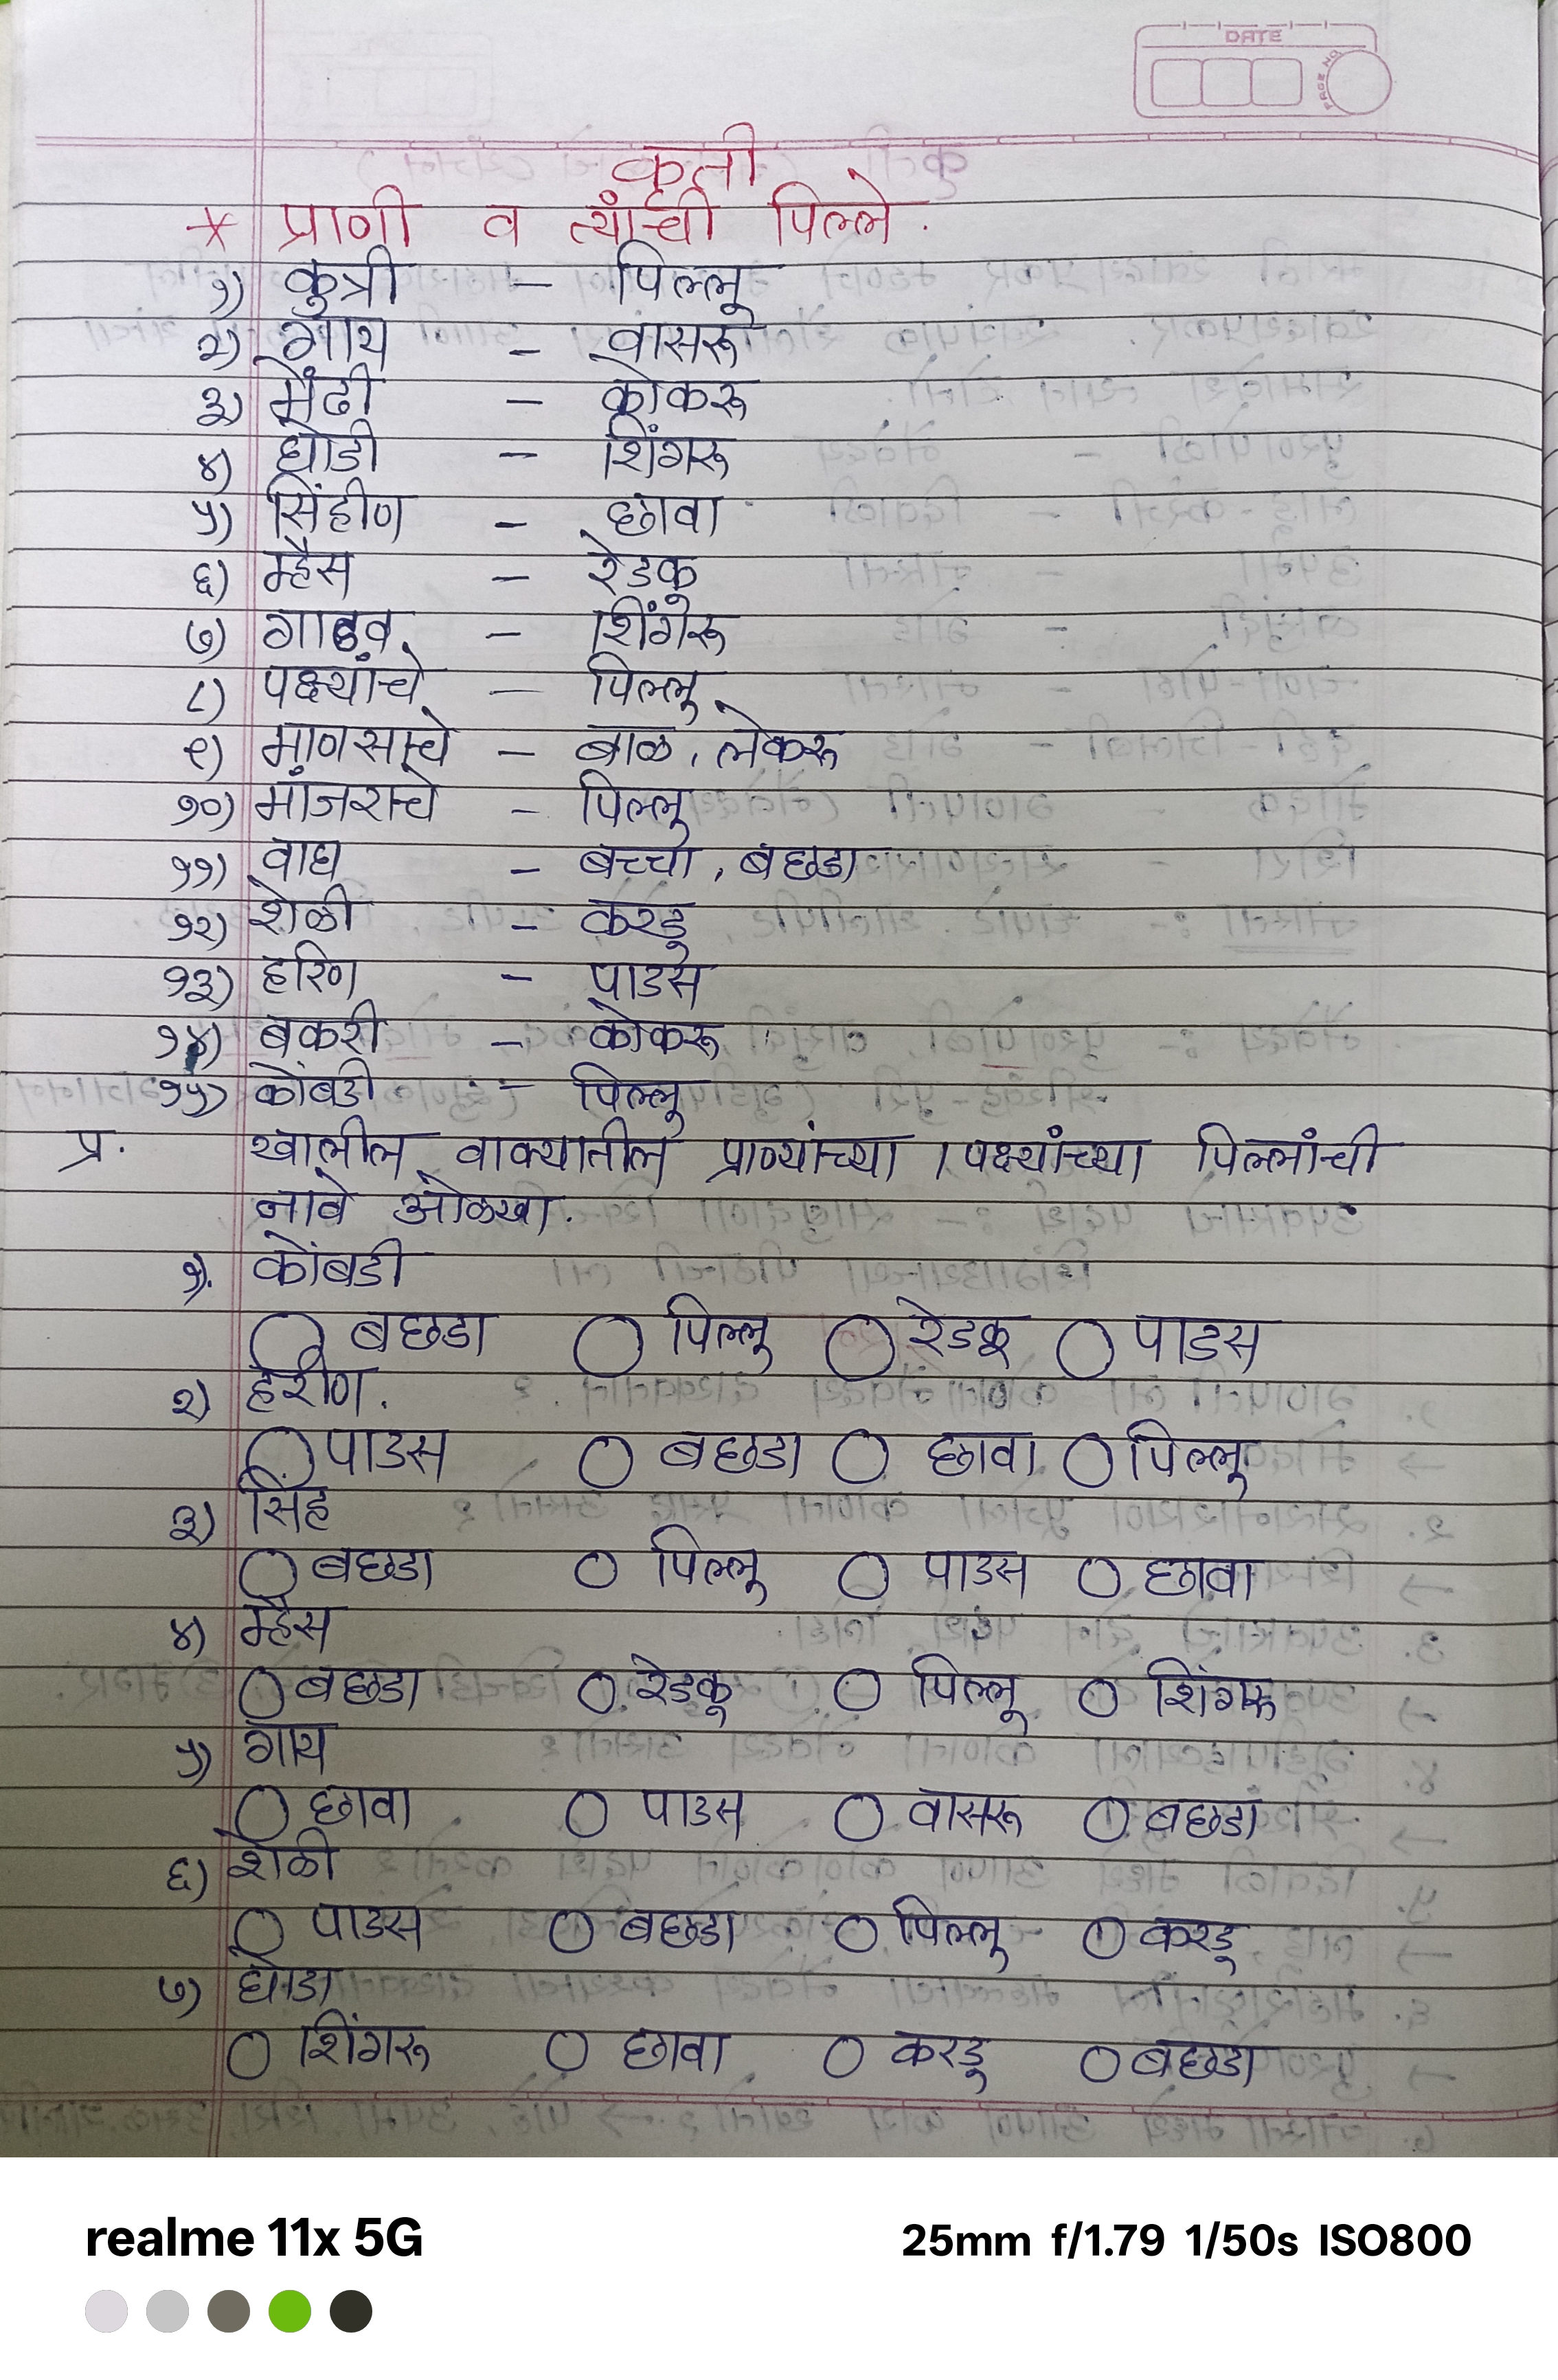 DATE
PAGE NO
कृती
* प्राणी व त्यांची पिल्ले.
१) कुत्री - पिल्लू
२) गाय - वासरू
३) मेंढी - कोकरू
४) घोडी - शिंगरू
५) सिंहीण - छावा
६) म्हैस - रेडकू
७) गाढव - शिंगरू
८) पक्ष्यांचे - पिल्लू
९) माणसाचे - बाळ, लेकरू
१०) मांजराचे - पिल्लू
११) वाघ - बच्चा, बछडा
१२) शेळी - करडू
१३) हरिण - पाडस
१४) बकरी - कोकरू
१५) कोंबडी - पिल्लू
प्र. खालील वाक्यातील प्राण्यांच्या / पक्ष्यांच्या पिल्लांची
नावे ओळखा.
१). कोंबडी
बछडा पिल्लू रेडकू पाडस
२) हरीण.
पाडस बछडा छावा पिल्लू
३) सिंह
बछडा पिल्लू पाडस छावा
४) म्हैस
बछडा रेडकू पिल्लू शिंगरू
५) गाय
छावा पाडस वासरू बछडा
६) शेळी
पाडस बछडा पिल्लू करडू
७) घोडा
शिंगरू छावा करडू बछडा
realme 11x 5G
25mm f/1.79 1/50s ISO800